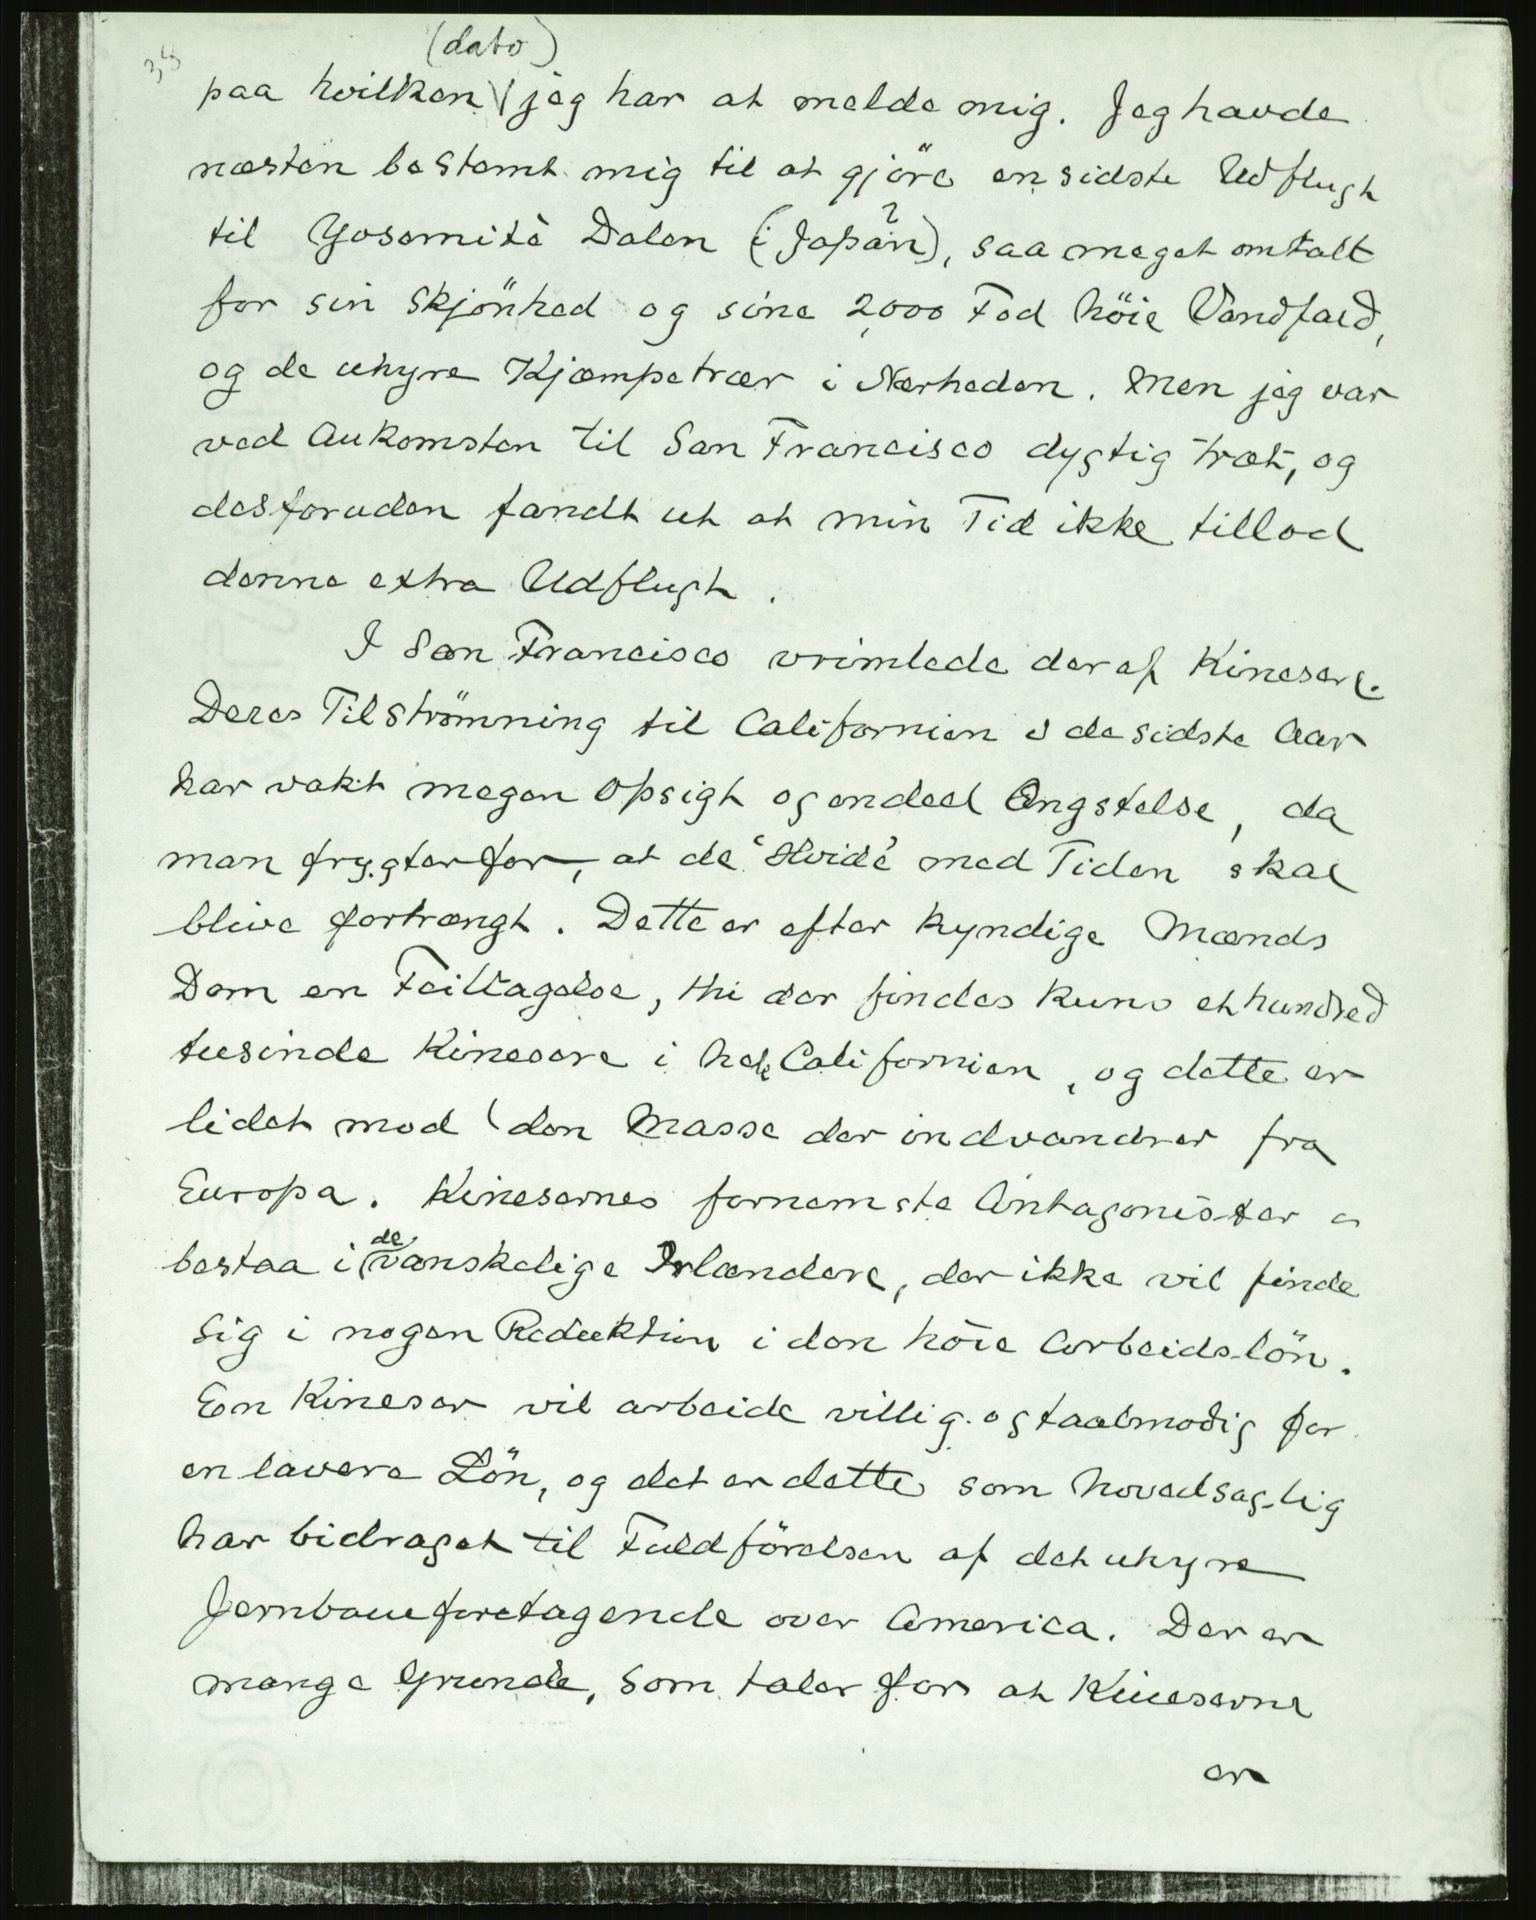 38
(dato)
paa hvilken jeg har at melde mig. Jeg havde
næsten bestemt mig til at gjöre en sidste Udflugt
til Yosemitè Dalen (i Japan?), saa meget omtalt
for sin skjönhed og sine 2,000 Fod höie Vandfald,
og de uhyre Kjæmpetrær i Nærheden. Men jeg var
ved Ankomsten til San Francisco dygtig træt, og
desforuden fandt ut at min Tid ikke tillod
denne extra Udflugt.
I San Francisco vrimlede der af Kinesere.
Deres Tilströmning til Californien i de sidste Aar
har vakt megen Opsigt og endeel Ængstelse, da
man frygter for, at de 'Hvide' med Tiden skal
blive fortrængt. Dette er efter kyndige Mænds
Dom en Feiltagelse, thi der findes kuns et hundred
tusinde Kinesere i hele Californien, og dette er
lidet mod den Masse der indvandrer fra
Europa. Kinesernes fornemste Antagonister
bestaa i de vanskelige Irlændere, der ikke vil finde
sig i nogen Reduktion i den höie Arbeidslön.
En Kineser vil arbeide villig og taalmodig for
en lavere Lön, og det er dette som hovedsaglig
har bidraget til Fuldförelsen af det uhyre
Jernbaneforetagende over America. Der er
mange Grunde, som taler for at Kineserne
er